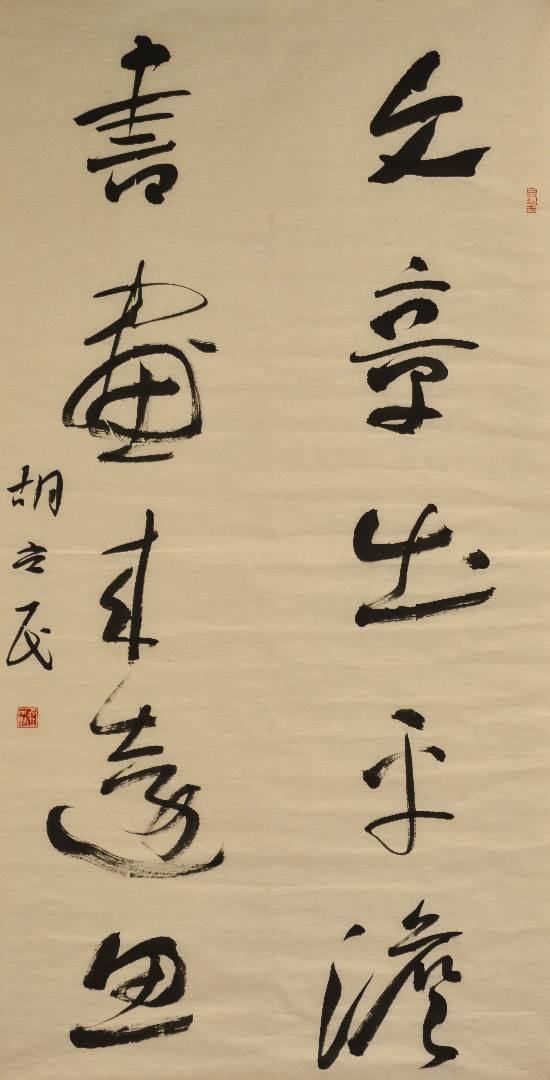 文章出平澹
書畫來遠思
胡立民